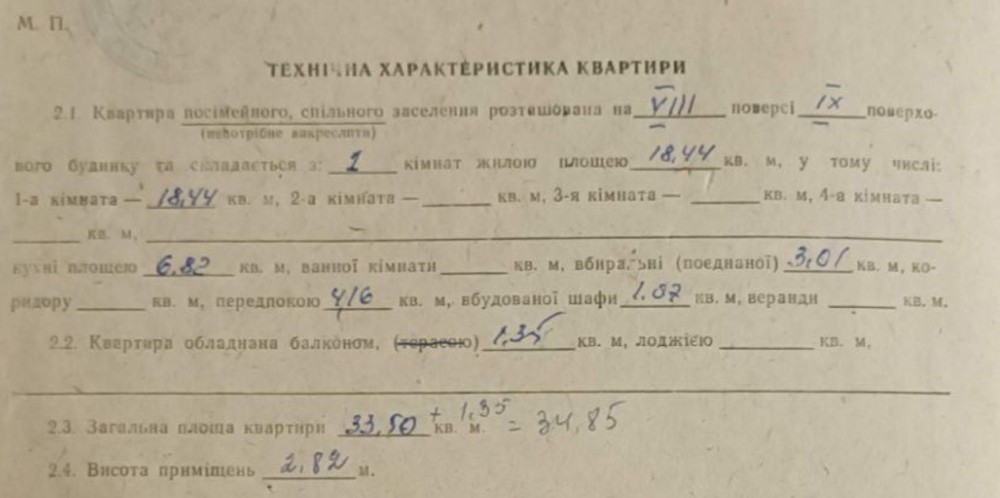 М. П.
ТЕХНІЧНА ХАРАКТЕРИСТИКА КВАРТИРИ
2.1. Квартира посімейного, спільного заселення розташована на VIII поверсі IX поверхо-
(непотрібне викреслити)
вого будинку та складається з: 1 кімнат жилою площею 18,44 кв. м, у тому числі:
1-а кімната — 18,44 кв. м, 2-а кімната — ______ кв. м, 3-я кімната — ______ кв. м, 4-а кімната —
______ кв. м, ______
кухні площею 6.82 кв. м, ванної кімнати ______ кв. м, вбиральні (поєднаної) 3,01 кв. м, ко-
ридору ______ кв. м, передпокою 4,16 кв. м, вбудованої шафи 1.07 кв. м, веранди ______ кв. м.
2.2. Квартира обладнана балконом, (терасою) 1,35 кв. м, лоджією ______ кв. м,
2.3. Загальна площа квартири 33,50 кв. м. + 1,35 = 34,85
2.4. Висота приміщень 2,82 м.